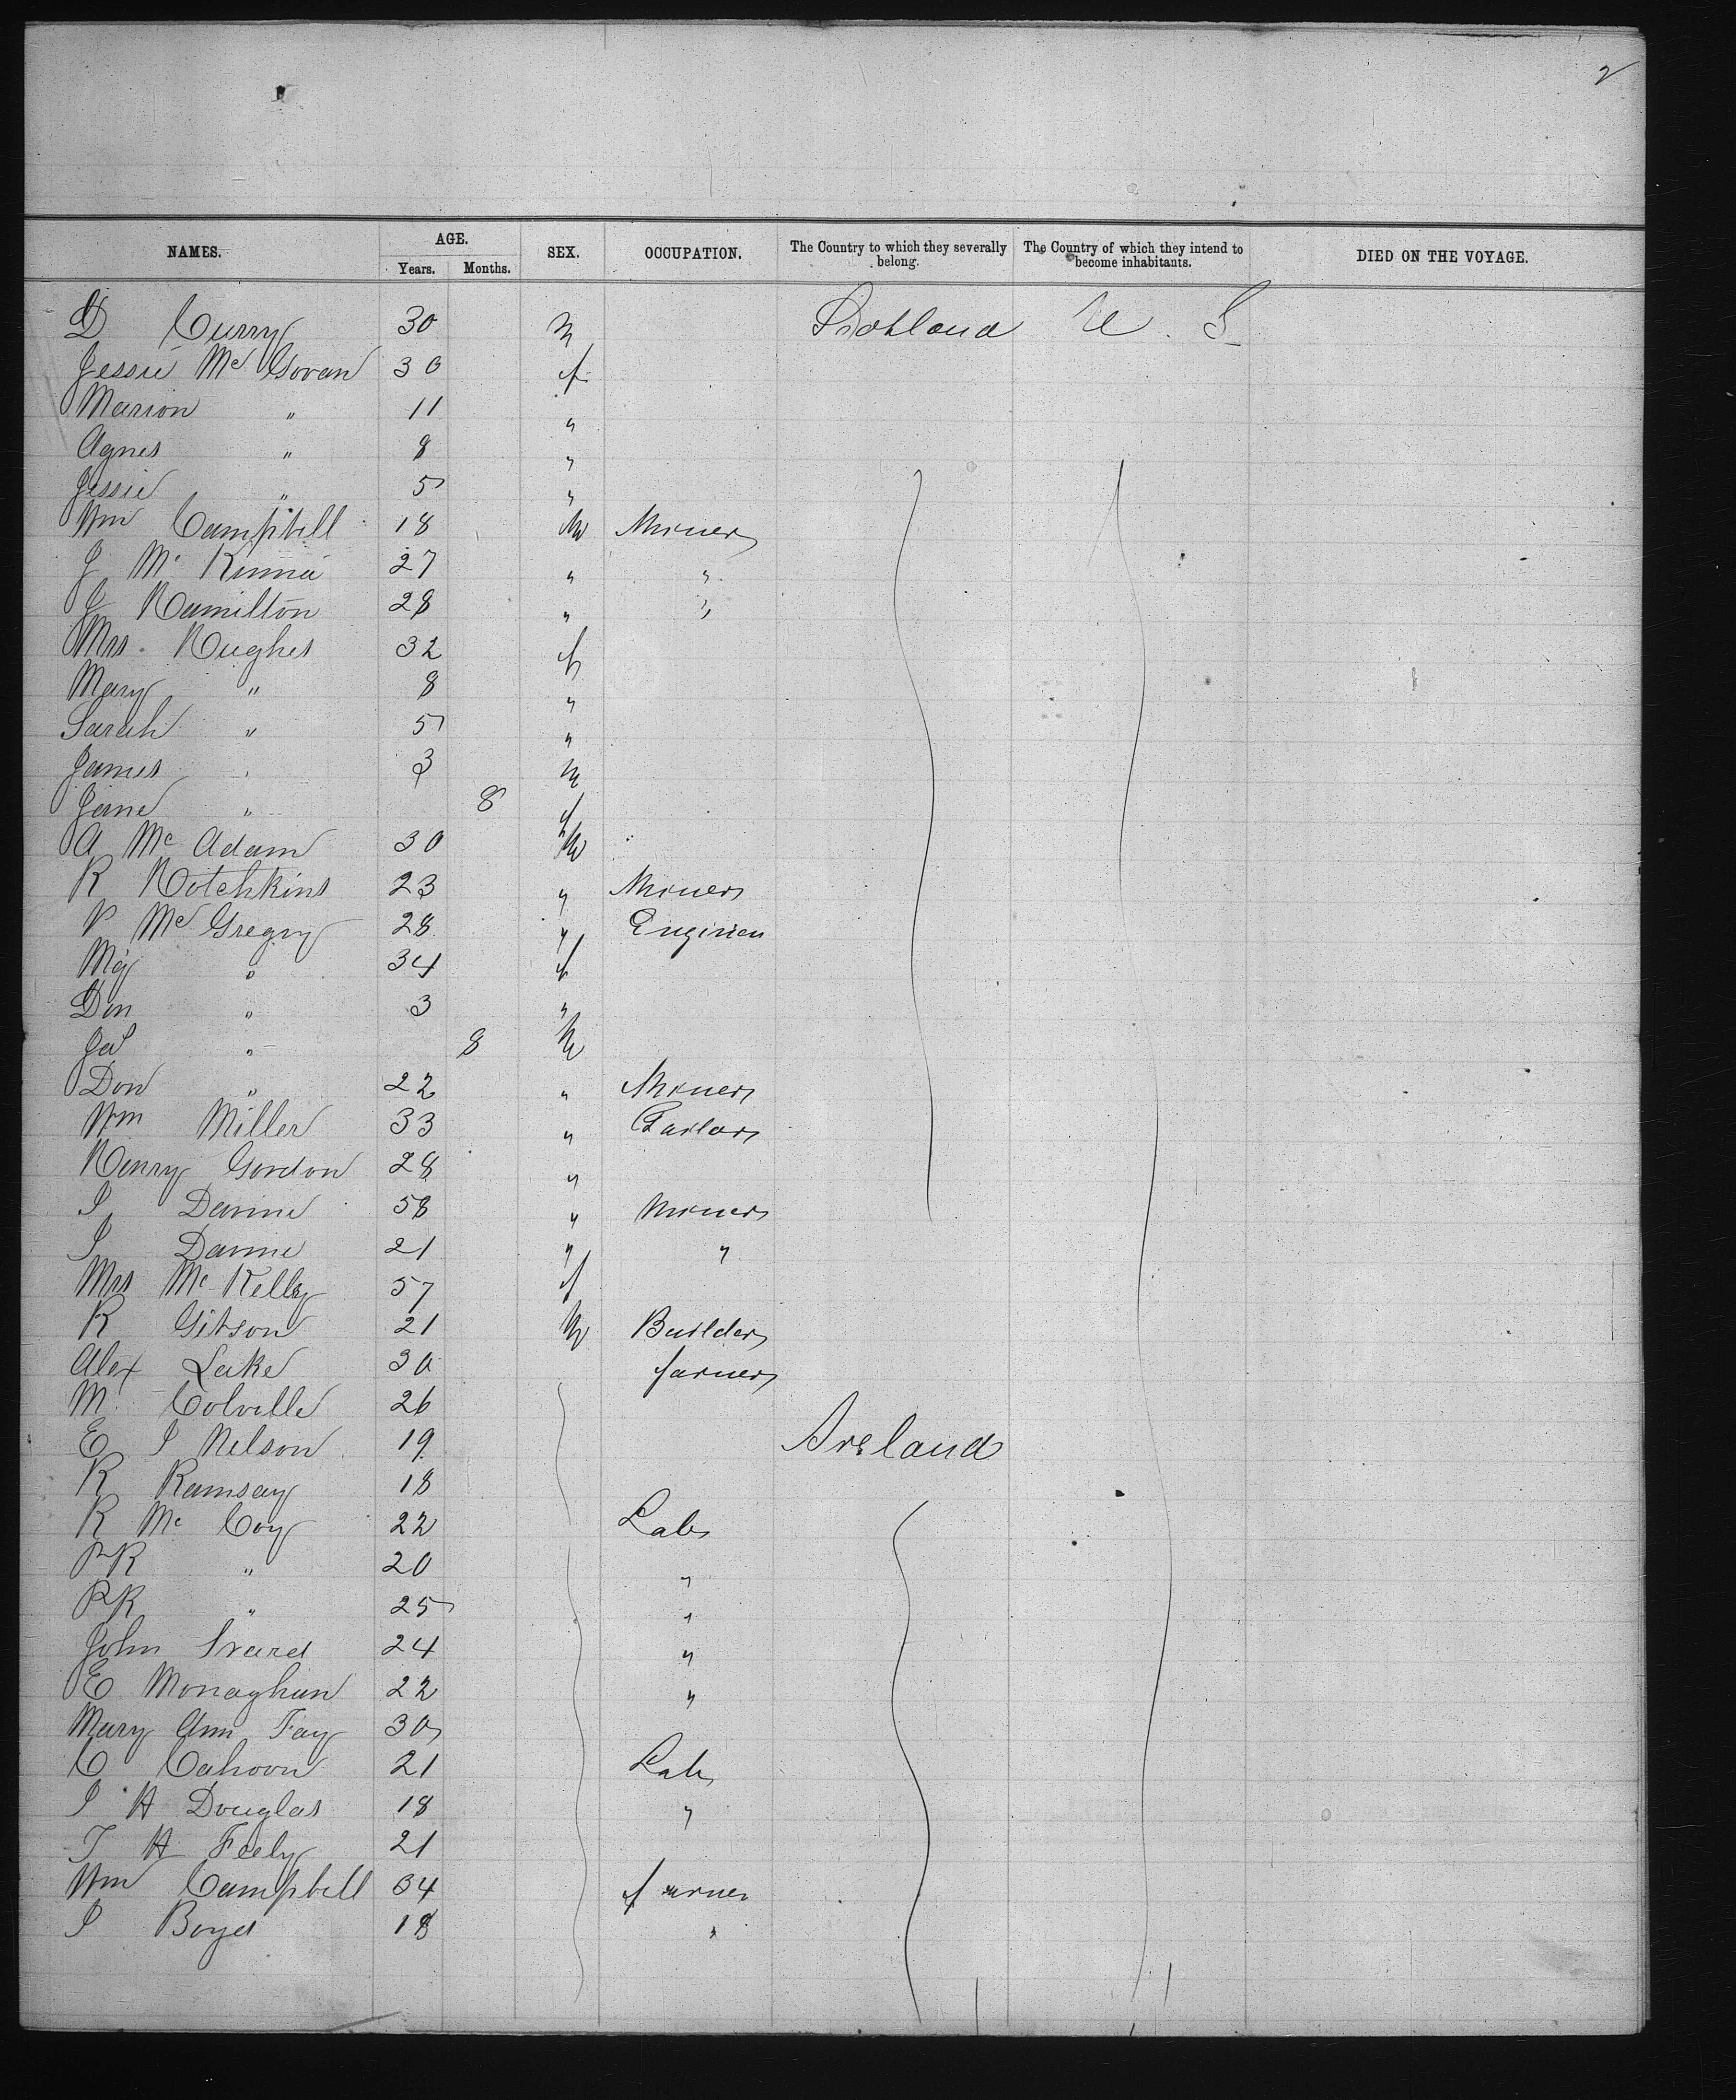 2
NAMES. AGE. SEX. OCCUPATION. The Country to which they severally belong. The Country of which they intend to become inhabitants. DIED ON THE VOYAGE.
Years. Months.
D Curry 30 M Scotland U. S
Jessie Mc Govan 30 f
Marion " 11 "
Agnes " 8 "
Jessie " 5 "
Wm Campbell 18 M Miner
J Mc Kinna 27 " "
J Hamilton 28 " "
Mrs. Hughes 32 f
Mary " 8 "
Sarah " 5 "
James " 3 M
Jane " 8 f
A Mc Adam 30 M
R Hotchkins 23 " Miner
P Mc Gregor 28 " Engineer
Mgy " 34 f
Don " 3 "
Jas " 8 M
Don " 22 " Miner
Wm Miller 33 " Tailor
Henry Gordon 28 "
J 58 " Miner
J 21 " "
Mrs Mc Kelly 57 f
R Gibson 21 M Builder
Alex Lake 30 farmer
M. Colville 26
E J Nelson 19 Ireland
R Ramsay 18
R Mc Coy 22 Labr
" 20 "
" 25 "
John Ward 24 "
E Monaghan 22 "
Mary Ann Fay 30
C Cahoon 21 Labr
J H Douglas 18 "
T H Feely 21
Wm Campbell 34 farmer
J Boyd 18 "